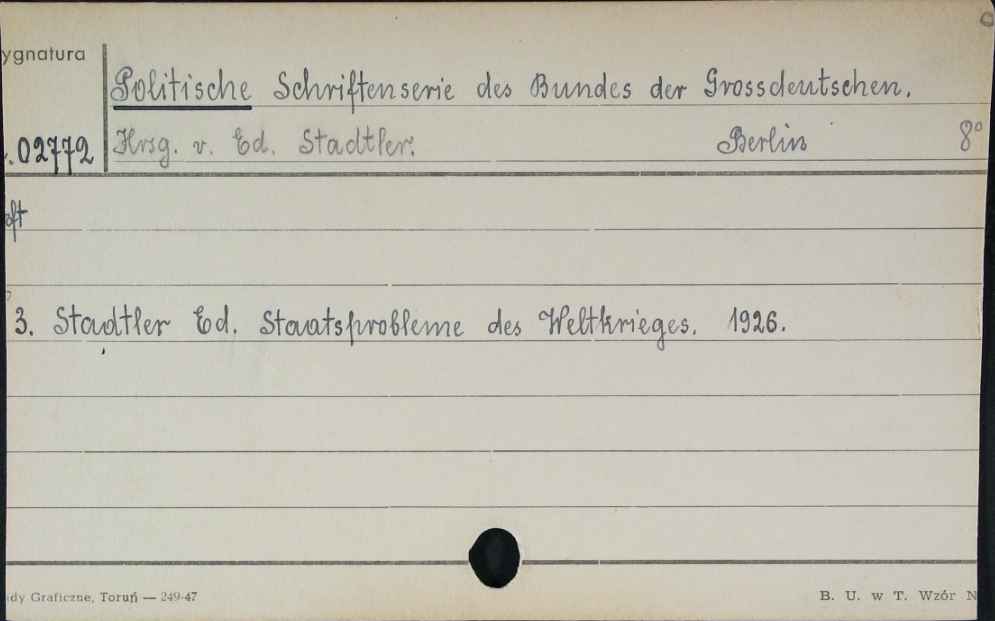 ygnatura
Politische Schriftenserie des Bundes der Grossdeutschen.
.02772 Hrsg. v. Ed. Stadtler. Berlin 8°
oft
3. Stadtler Ed. Staatsprobleme des Weltkrieges. 1926.
dy Graficzne, Toruń — 249-47
B. U. w T. Wzór N